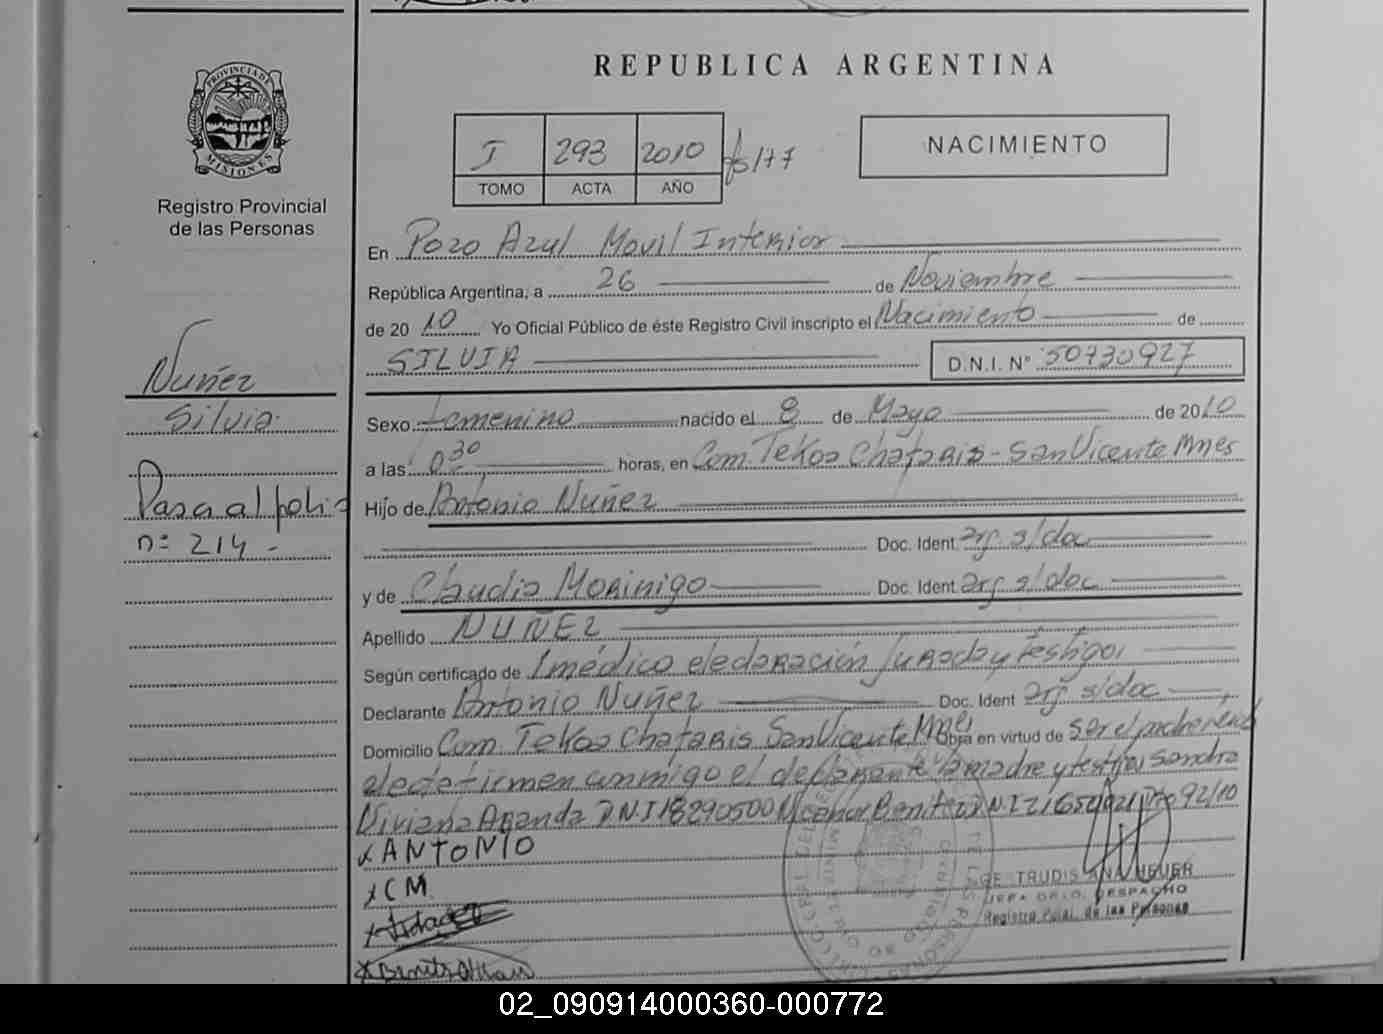 REPUBLICA ARGENTINA
PROVINCIA DE
MISIONES
Registro Provincial
de las Personas
I 293 2010 fo 177
TOMO ACTA AÑO
NACIMIENTO
En Pozo Azul Movil Interior
República Argentina, a 26 de Noviembre
de 2010 Yo Oficial Público de éste Registro Civil inscripto el Nacimiento de
SILVIA D.N.I. N° 50730927
Nuñez
Silvia
Pasa al folio
nº 214 -
Sexo femenino nacido el 8 de Mayo de 2010
a las 0 30 horas, en Com. Tekoa Chafariz - San Vicente Mnes
Hijo de Antonio Nuñez
Doc. Ident. arg s/doc
y de Claudia Morinigo Doc. Ident. arg s/doc
Apellido NUÑEZ
Según certificado de 1 médico declaración jurada y testigos
Declarante Antonio Nuñez Doc. Ident arg s/doc
Domicilio Com. Tekoa Chafaris San Vicente Mnes Obra en virtud de ser el padre
firman conmigo el declarante la madre y testigos Sandra
Viviana D.N.I 18290500 Benitez D.N.I 92/10
x ANTONIO
x CM
x
x Benitez
GERTRUDIS ANA HEUER
JEFA OFIC. DESPACHO
Registro Pcial. de las Personas
02_090914000360-000772